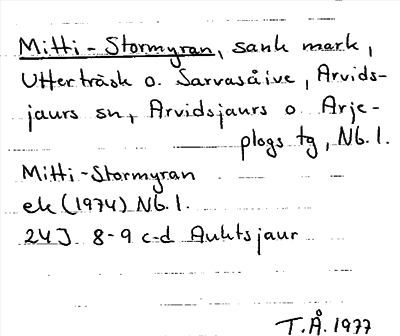 Mitti-Stormyran, sank mark,
Utterträsk o. Sarvasåive, Arvids-
jaurs sn, Arvidsjaurs o Arje-
plogs tg, Nb. l.
Mitti-Stormyran
ek (1974) Nb. l.
24J 8-9 c-d Auktsjaur
T.Å. 1977